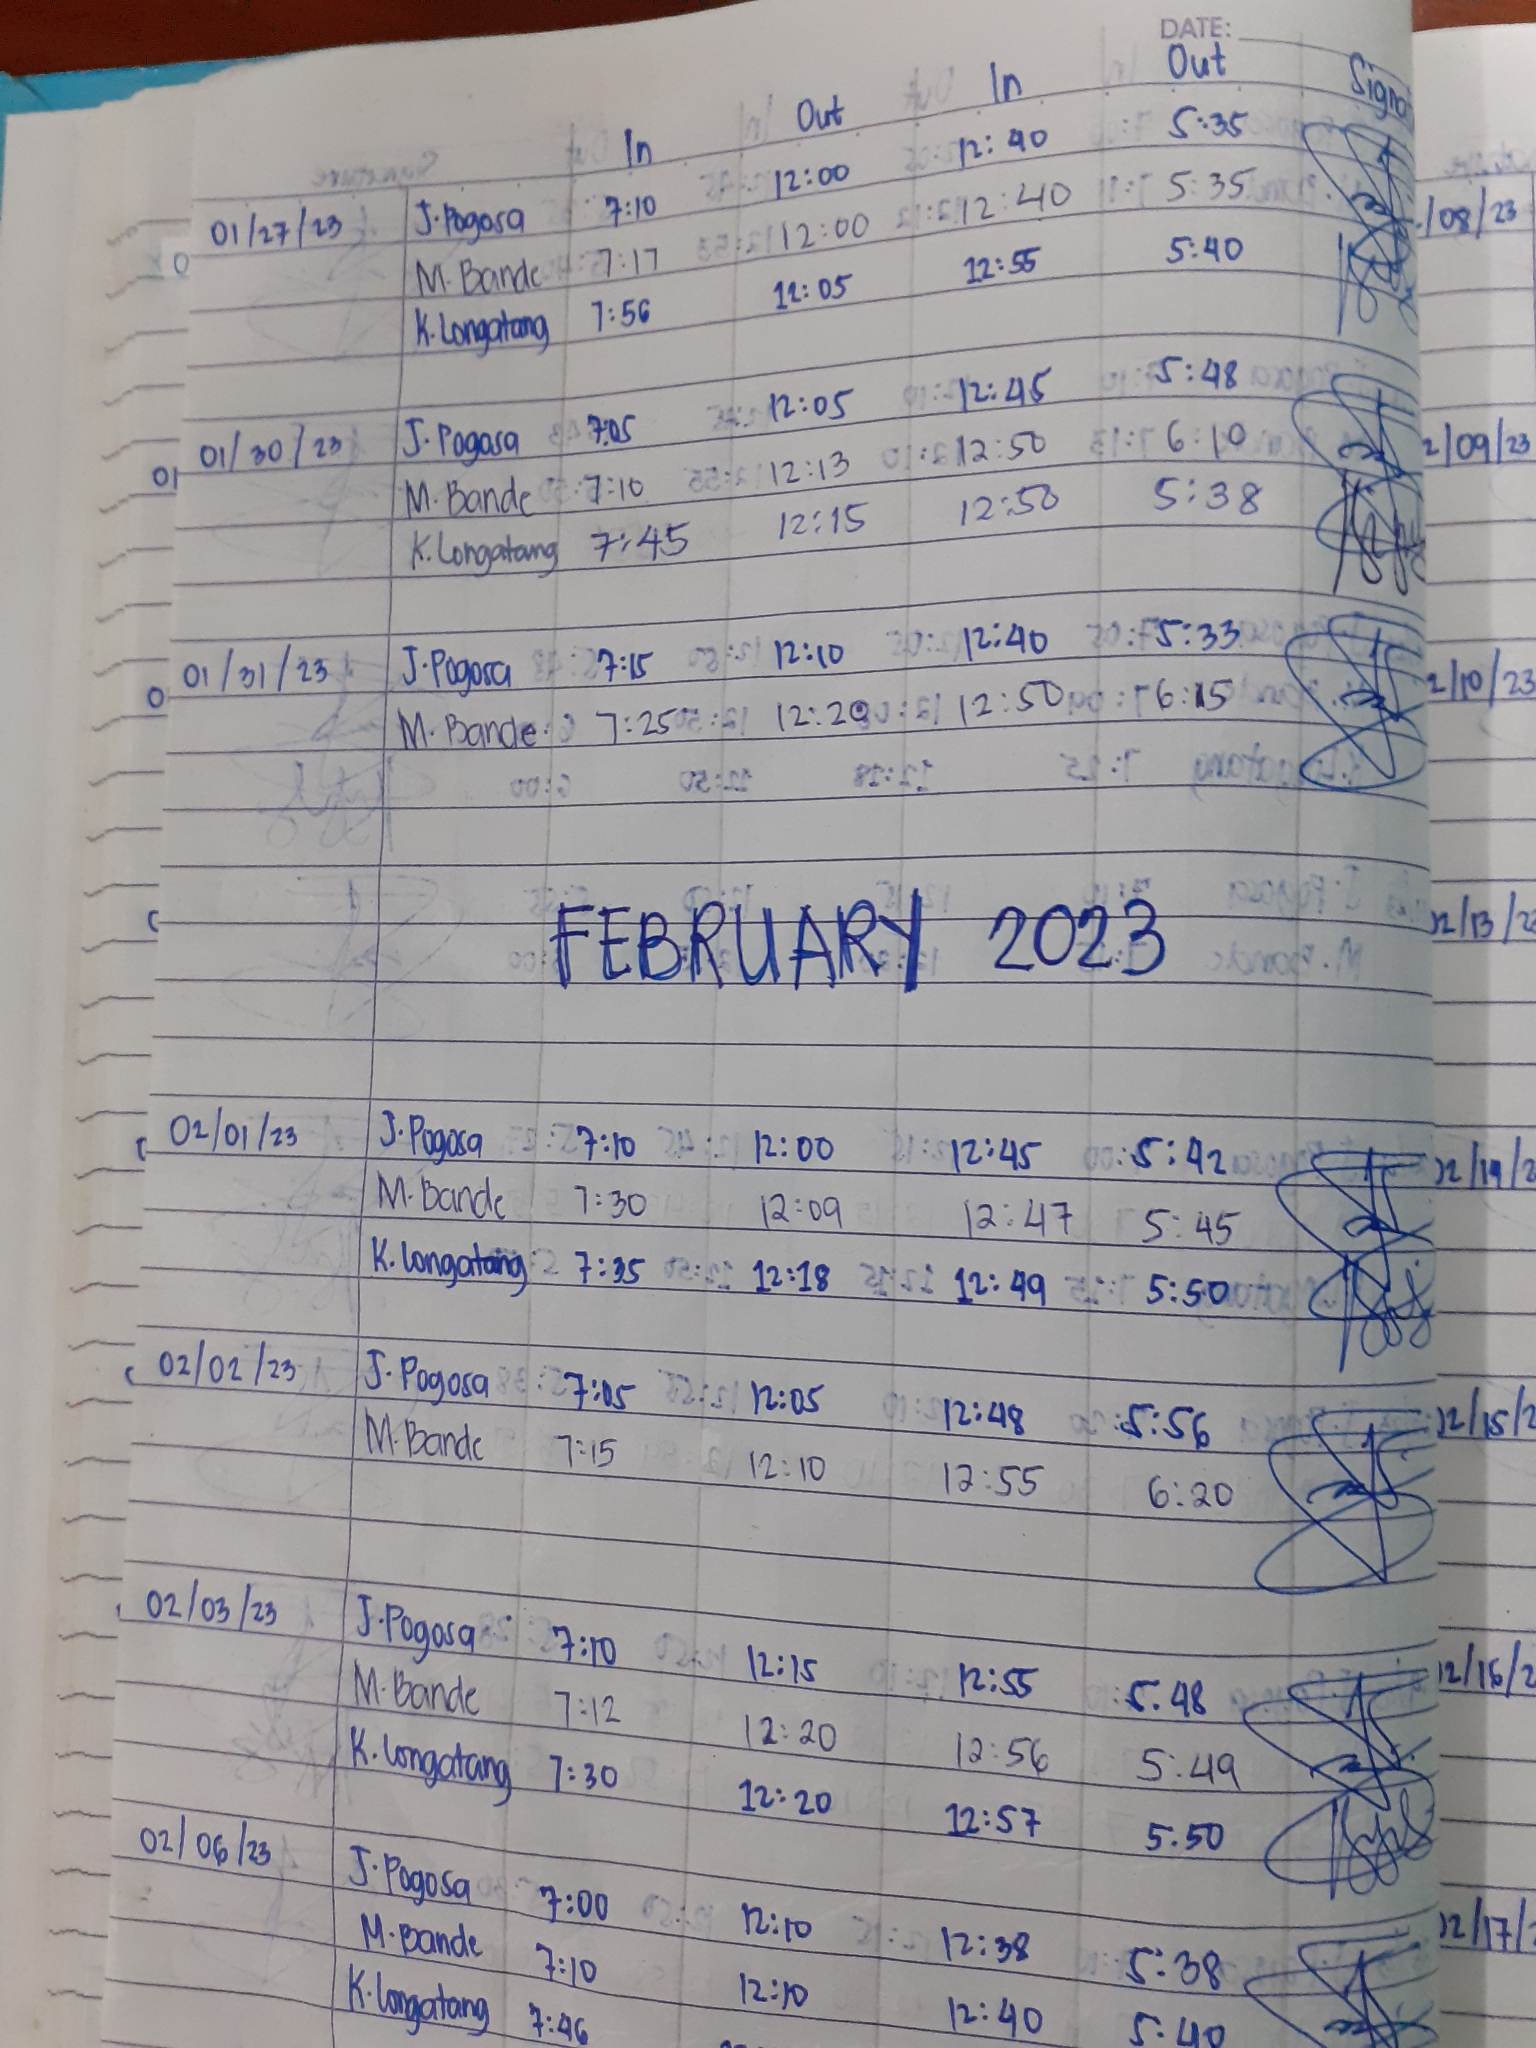 DATE:
In Out In Out
01/27/23 J. Pogosa 7:10 12:00 12:40 5:35
M. Bande 7:17 12:00 12:40 5:35
K. Longatang 7:56 12:05 12:55 5:40
01/30/23 J. Pogosa 7:05 12:05 12:45 5:48
M. Bande 7:10 12:13 12:50 6:10
K. Longatang 7:45 12:15 12:50 5:38
01/31/23 J. Pogosa 7:15 12:10 12:40 5:33
M. Bande 7:25 12:20 12:50 6:15
FEBRUARY 2023
02/01/23 J. Pogosa 7:10 12:00 12:45 5:42
M. Bande 7:30 12:09 12:47 5:45
K. Longatang 7:35 12:18 12:49 5:50
02/02/23 J. Pogosa 7:05 12:05 12:48 5:56
M. Bande 7:15 12:10 12:55 6:20
02/03/23 J. Pogosa 7:10 12:15 12:55 5:48
M. Bande 7:12 12:20 12:56 5:49
K. Longatang 7:30 12:20 12:57 5:50
02/06/23 J. Pogosa 7:00 12:10 12:38 5:38
M. Bande 7:10 12:10 12:40 5:40
K. Longatang 7:46
/08/23
2/09/23
2/10/23